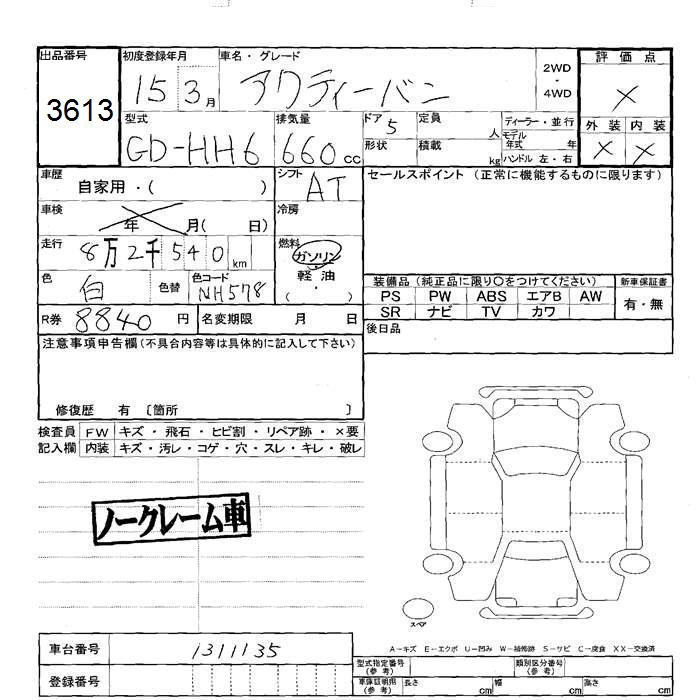 出品番号 初度登録年月 車名・グレード 2WD・4WD 評価点
3613 15 3月 アクティーバン ×
型式 排気量 ドア 5 定員 人 ディーラー・並行 外装 内装
GD-HH6 660cc 形状 積載 kg モデル年式 年 ハンドル 左・右 × ×
車歴 自家用・( ) シフト AT セールスポイント (正常に機能するものに限ります)
車検 年 月( 日) 冷房
走行 8万2千540km 燃料 ガソリン 軽油 ・( )
色 白 色替 色コード NH578
装備品 (純正品に限り○をつけてください) 新車保証書
PS PW ABS エアB AW 有・無
SR ナビ TV カワ
R券 8840円 名変期限 月 日 後日品
注意事項申告欄(不具合内容等は具体的に記入して下さい)
修復歴 有 〔箇所 〕
検査員 FW キズ・飛石・ヒビ割・リペア跡・×要
記入欄 内装 キズ・汚レ・コゲ・穴・スレ・キレ・破レ
ノークレーム車
スペア
A-キズ E-エクボ U-凹み W-補修跡 S-サビ C-腐食 XX-交換済
車台番号 1311135
型式指定番号(参考) 類別区分番号(参考)
登録番号
車庫証明用(参考) 長さ cm 幅 cm 高さ cm